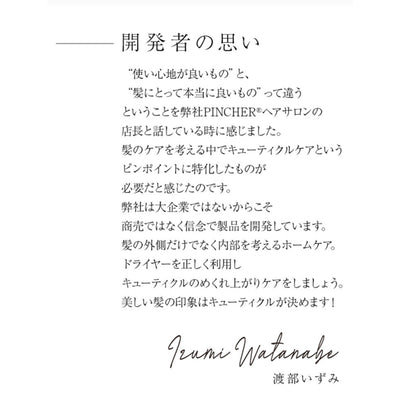 開発者の思い
“使い心地が良いもの”と、
“髪にとって本当に良いもの”って違う
ということを弊社PINCHER®ヘアサロンの
店長と話している時に感じました。
髪のケアを考える中でキューティクルケアという
ピンポイントに特化したものが
必要だと感じたのです。
弊社は大企業ではないからこそ
商売ではなく信念で製品を開発しています。
髪の外側だけでなく内部を考えるホームケア。
ドライヤーを正しく利用し
キューティクルのめくれ上がりケアをしましょう。
美しい髪の印象はキューティクルが決めます！
Izumi Watanabe
渡部いずみ